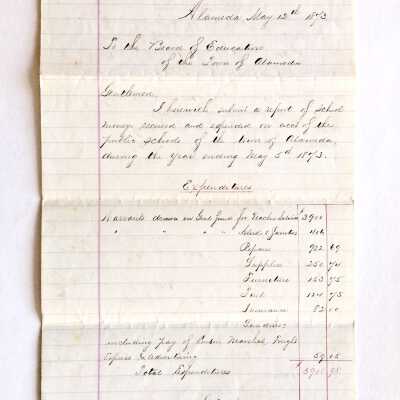 Alameda May 12th 1873
To the Board of Education
of the Town of Alameda
Gentlemen,
I herewith submit a report of school
moneys received and expended on acct of the
public schools of the town of Alameda,
during the year ending May 5th 1873.
Expenditures
Warrants drawn on Genl fund for Teachers $3900
" " " "
Repairs 922 69
Supplies 250 74
Furniture 153 75
124 75
Insurance 52 00
Sundries
including pay of Marshal, Freight
Express & Advertising 59 05
Total Expenditures